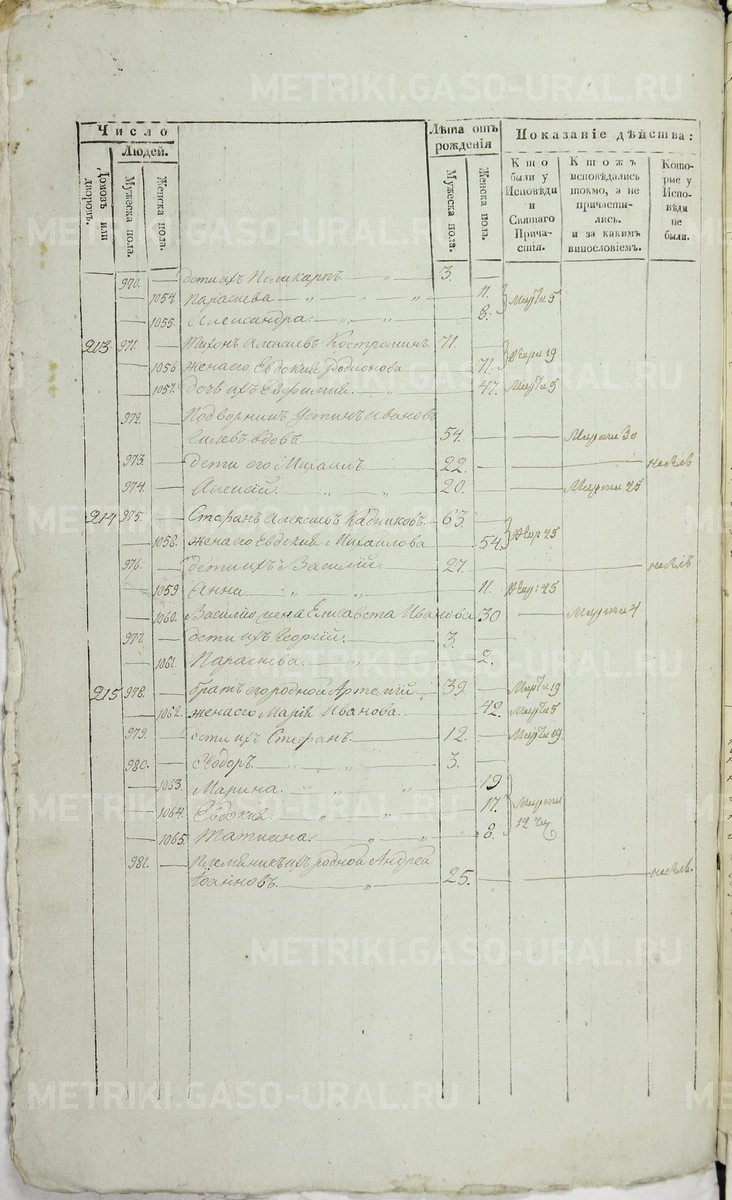 METRIKI.GASO-URAL.RU
Число
Людей.
Домовъ или дворовъ.
Мужеска пола.
Женска пола.
Лѣта отъ рожденія
Мужеска пола.
Женска пола.
Показаніе дѣйства:
Кто были у Исповѣди и Святаго Причастія.
Ктожъ исповѣдались токмо, а не причастились. и за какимъ винословіемъ.
Которые у Исповѣди не были.
970. дети ихъ Поликарпъ 3.
1054. Параскева 11.
1055. Александра 8. Марта 5
213 971. Тихонъ Алексеевъ 71.
1056 жена его Евдокия Родионова 71. 19
1057. Дочь ихъ Евфимия 47. Марта 5
972. Подворникъ Устинъ Ивановъ
вдовъ 54. Марта 30
973. дети его Михаилъ 22.
974. Алексей 20. Марта 25
214 975. Стефанъ Алексеевъ Кадниковъ 63
1058. жена его Евдокия Михайлова 54 25
976. дети ихъ Василий 27.
1059 Анна 11. 25
1060. Василию жена Елисавета Иванова 30 Марта 4
977. дети ихъ Георгий 3.
1061. Параскева 2.
215 978. братъ его родной Артемий 39. Марта 19
1062. жена его Мария Иванова 42. Марта 5
979. дети ихъ Стефанъ 12. Марта 19.
980. Ѳеодоръ 3.
1053. Марина 19
1064. Евдокия 17. Марта
12
1065 Татиана 8.
981. Племянникъ ихъ родной Андрей
Іоанновъ 25.